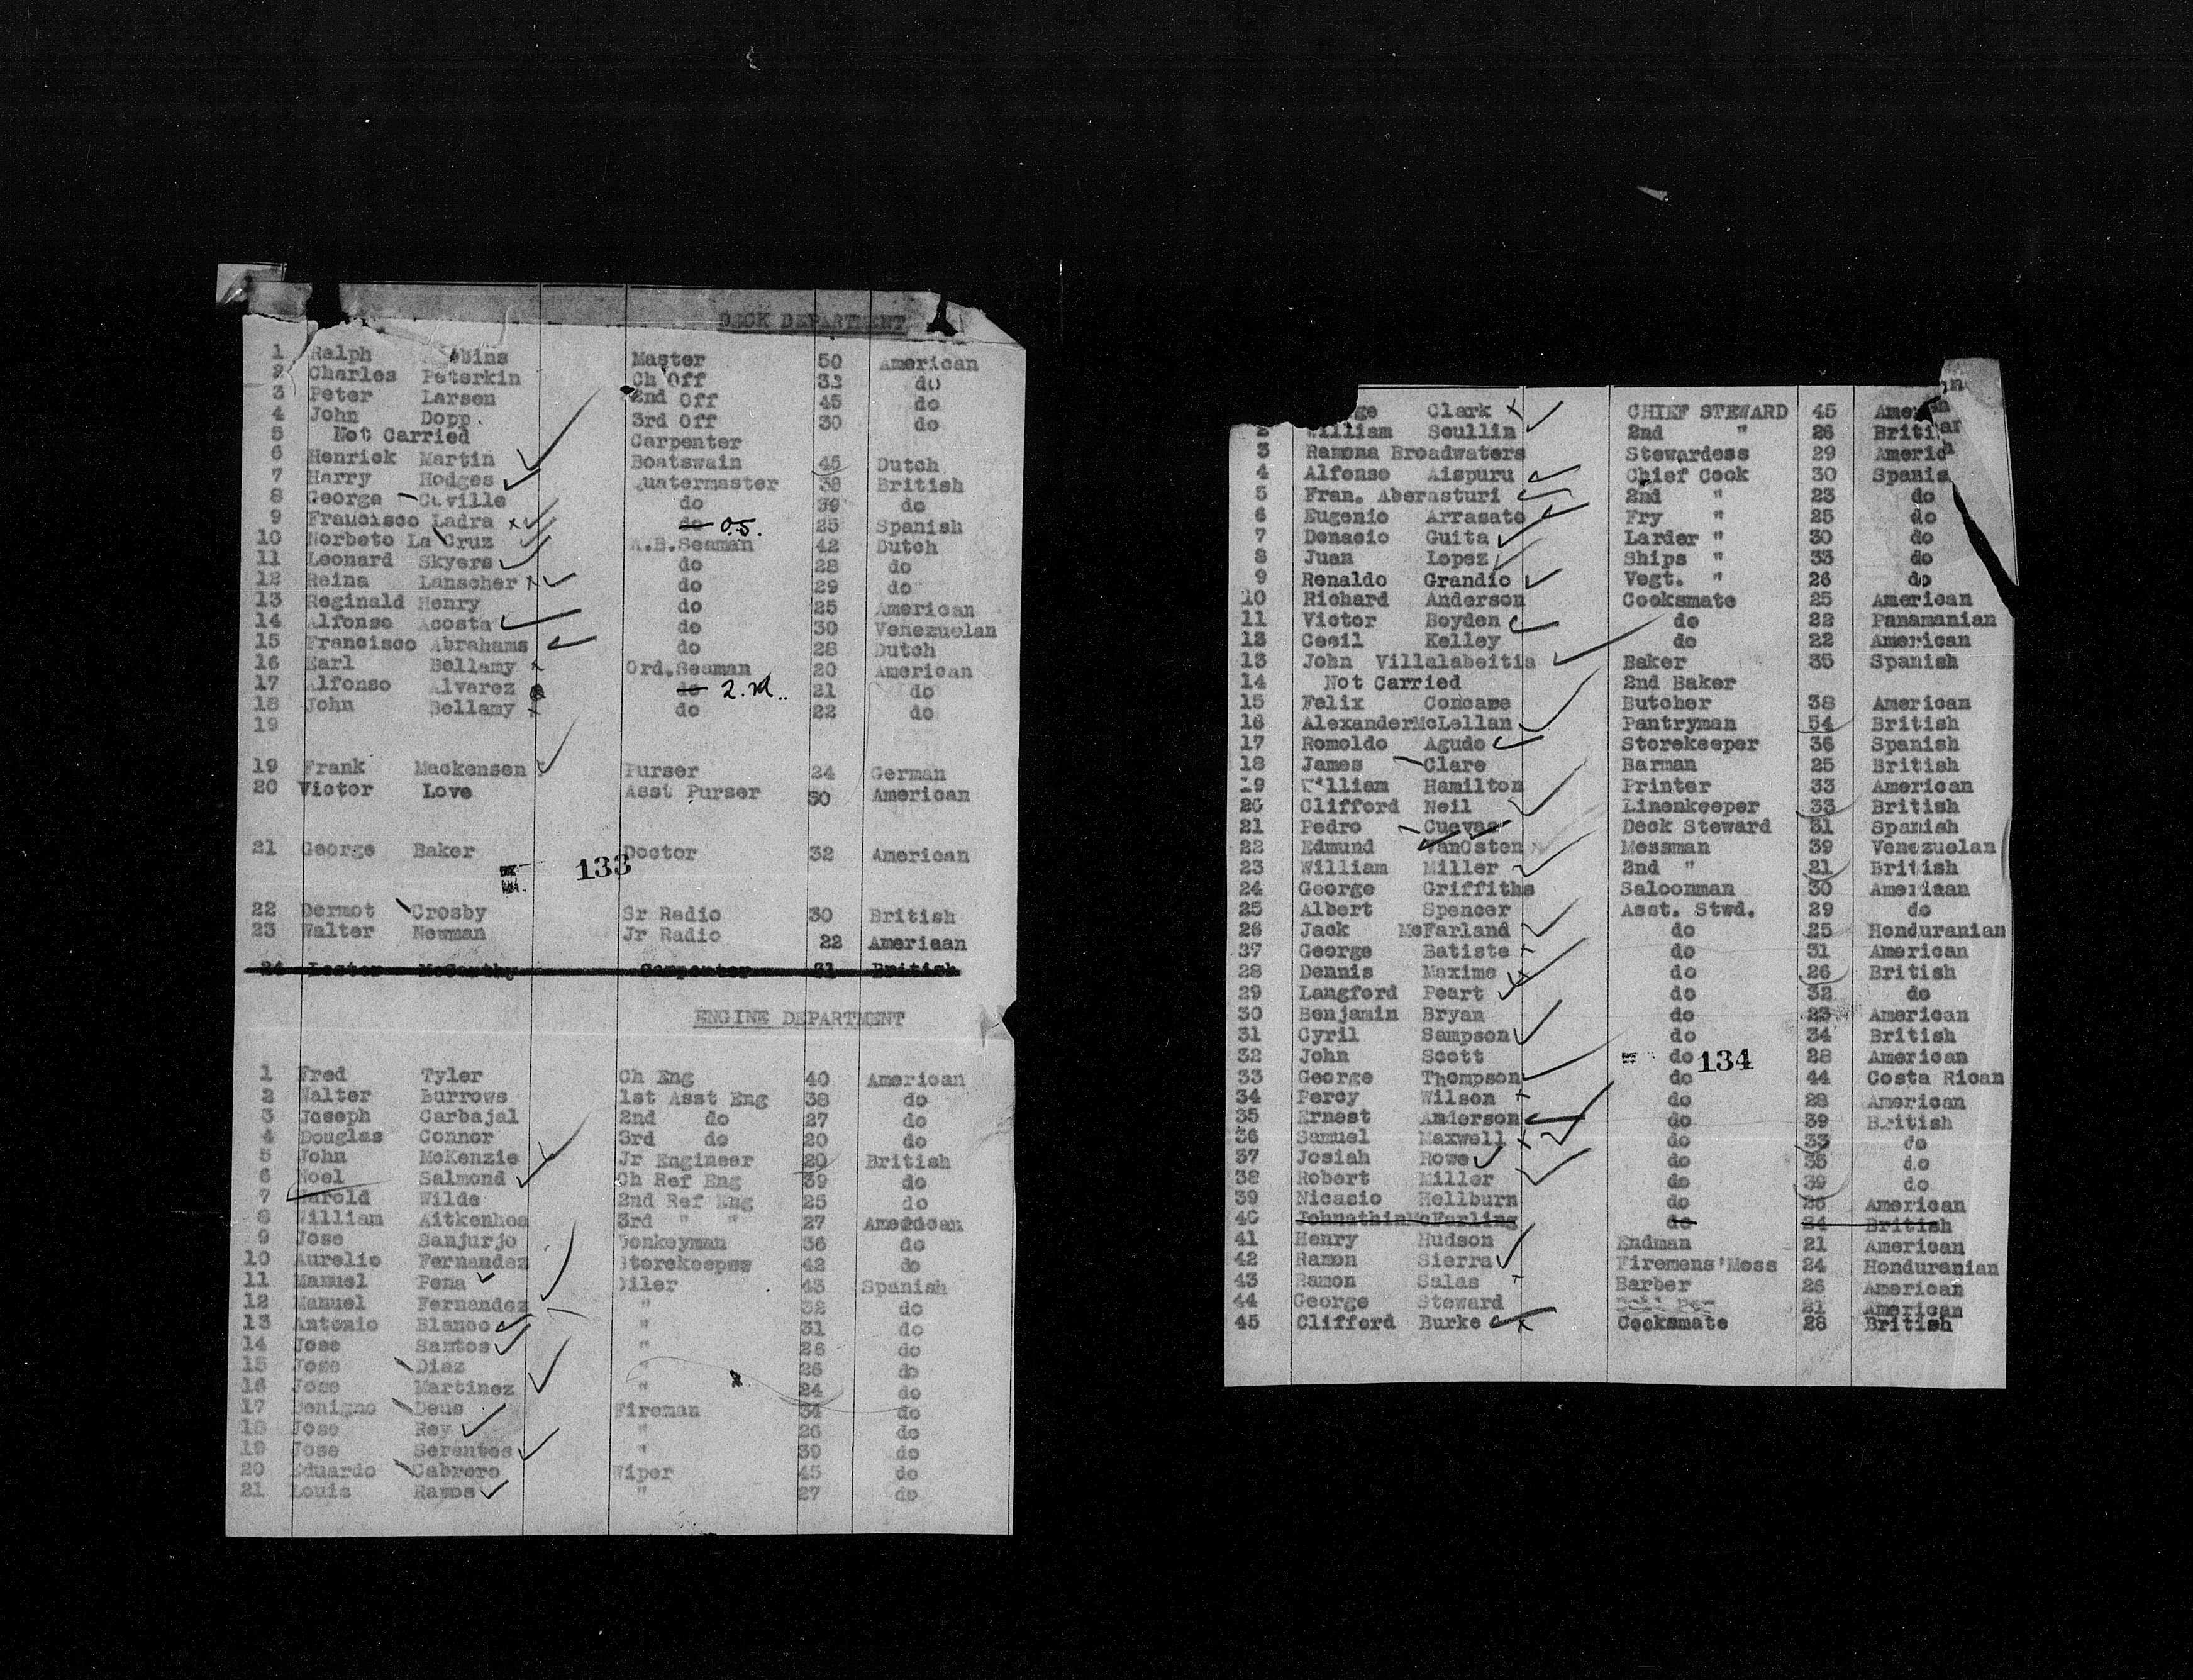 DECK DEPARTMENT
1 Ralph Master 50 American
2 Charles Peterkin Ch Off 33 do
3 Peter Larsen 2nd Off 45 do
4 John Dopp 3rd Off 30 do
5 Not Carried Carpenter
6 Henrick Martin Boatswain 45 Dutch
7 Harry Hodges Quatermaster 38 British
8 George Caville do 39 do
9 Francisco Ladra do O.S. 25 Spanish
10 Norbeto La Cruz A.B.Seaman 42 Dutch
11 Leonard Skyers do 28 do
12 Reina Lanscher do 29 do
13 Reginald Henry do 25 American
14 Alfonso Acosta do 30 Venezuelan
15 Francisco Abrahams do 28 Dutch
16 Earl Bellamy Ord.Seaman 20 American
17 Alfonso Alvarez do 21 do
18 John Bellamy do 22 do
19
19 Frank Mackensen Purser 24 German
20 Victor Love Asst Purser 30 American
21 George Baker Doctor 32 American
133
22 Dermot Crosby Sr Radio 30 British
23 Walter Newman Jr Radio 22 Ameriaan
24 Lester McCarthy Carpenter 31 British
ENGINE DEPARTMENT
1 Fred Tyler Ch Eng 40 American
2 Walter Burrows 1st Asst Eng 38 do
3 Joseph Carbajal 2nd do 27 do
4 Douglas Connor 3rd do 20 do
5 John McKenzie Jr Engineer 20 British
6 Noel Salmond Ch Ref Eng 39 do
7 Harold Wilde 2nd Ref Eng 25 do
8 William Aitkenhea 3rd " " 27 American
9 Jose Sanjurjo Donkeyman 36 do
10 Aurelio Fernandez Storekeepew 42 do
11 Manuel Pena Oiler 43 Spanish
12 Manuel Fernandez " 32 do
13 Antonio Blanco " 31 do
14 Jose Santos " 26 do
15 Jose Diaz " 26 do
16 Jose Martinez " 24 do
17 Benigno Deus Fireman 34 do
18 Jose Rey " 26 do
19 Jose Serantes " 39 do
20 Eduardo Cabrero Wiper 45 do
21 Louis Ramos " 27 do
ge Clark CHIEF STEWARD 45 American
2 William Scullin 2nd " 26 British
3 Ramona Broadwaters Stewardess 29 Americ
4 Alfonso Aispuru Chief Cook 30 Spanis
5 Fran. Aberasturi 2nd " 23 do
6 Eugenio Arrasate Fry " 25 do
7 Donacio Guita Larder " 30 do
8 Juan Lopez Ships " 33 do
9 Renaldo Grandio Vegt. " 26 do
10 Richard Anderson Cooksmate 25 American
11 Victor Boyden do 22 Panamanian
12 Cecil Kelley do 22 American
13 John Villalabeitia Baker 35 Spanish
14 Not Carried 2nd Baker
15 Felix Concame Butcher 38 American
16 AlexanderMcLellan Pantryman 54 British
17 Romoldo Agudo Storekeeper 36 Spanish
18 James Clare Barman 25 British
19 William Hamilton Printer 33 American
20 Clifford Neil Linenkeeper 33 British
21 Pedro Cuevas Deck Steward 31 Spanish
22 Edmund VanOsten Messman 39 Venezuelan
23 William Miller 2nd " 21 British
24 George Griffiths Saloonman 30 Ameriaan
25 Albert Spencer Asst. Stwd. 29 do
26 Jack McFarland do 25 Honduranian
27 George Batiste do 31 American
28 Dennis Maxime do 26 British
29 Langford Peart do 32 do
30 Benjamin Bryan do 23 American
31 Cyril Sampson do 34 British
32 John Scott do 28 American
134
33 George Thompson do 44 Costa Rican
34 Percy Wilson do 28 American
35 Ernest Anderson do 39 British
36 Samuel Maxwell do 33 do
37 Josiah Rowe do 35 do
38 Robert Miller do 39 do
39 Nicasio Hellburn do 26 American
40 JohnathinMcFarling do 24 British
41 Henry Hudson Endman 21 American
42 Ramon Sierra Firemens'Mess 24 Honduranian
43 Ramon Salas Barber 26 American
44 George Steward 21 American
45 Clifford Burke Cooksmate 28 British